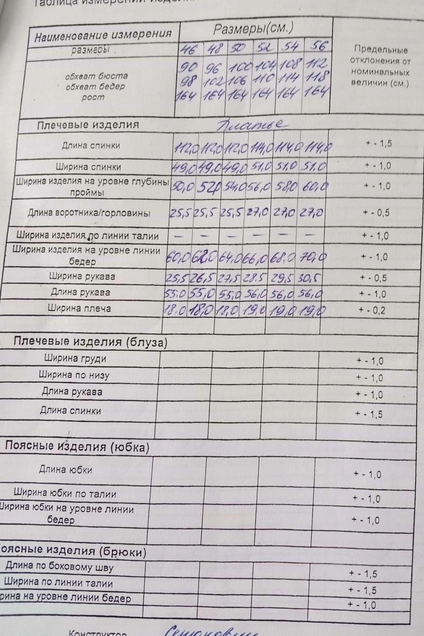 Таблица измерений изделия
Наименование измерения Размеры(см.) Предельные отклонения от номинальных величин (см.)
размеры 46 48 50 52 54 56
обхват бюста 90 96 100 104 108 112
обхват бедер 98 102 106 110 114 118
рост 164 164 164 164 164 164
Плечевые изделия Платье
Длина спинки 112,0 112,0 112,0 114,0 114,0 114,0 + - 1,5
Ширина спинки 49,0 49,0 49,0 51,0 51,0 51,0 + - 1,0
Ширина изделия на уровне глубины проймы 50,0 52,0 54,0 56,0 58,0 60,0 + - 1,0
Длина воротника/горловины 25,5 25,5 25,5 27,0 27,0 27,0 + - 0,5
Ширина изделия по линии талии – – – – – – + - 1,0
Ширина изделия на уровне линии бедер 60,0 62,0 64,0 66,0 68,0 70,0 + - 1,0
Ширина рукава 25,5 26,5 27,5 28,5 29,5 30,5 + - 0,5
Длина рукава 55,0 55,0 55,0 56,0 56,0 56,0 + - 1,0
Ширина плеча 18,0 18,0 18,0 19,0 19,0 19,0 + - 0,2
Плечевые изделия (блуза)
Ширина груди + - 1,0
Ширина по низу + - 1,0
Длина рукава + - 1,0
Длина спинки + - 1,5
Поясные изделия (юбка)
Длина юбки + - 1,0
Ширина юбки по талии + - 1,0
Ширина юбки на уровне линии бедер + - 1,0
оясные изделия (брюки)
Длина по боковому шву + - 1,5
Ширина по линии талии + - 1,5
рина на уровне линии бедер + - 1,0
Конструктор